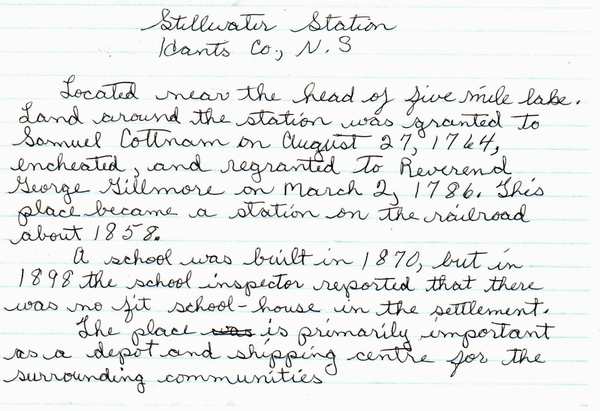 Stillwater Station
Hants Co., N. S
Located near the head of five mile lake.
Land around the station was granted to
Samuel Cottnam on August 27, 1764,
encheated, and regranted to Reverend
George Gillmore on March 2, 1786. This
place became a station on the railroad
about 1858.
A school was built in 1870, but in
1898 the school inspector reported that there
was no fit school-house in the settlement.
The place was is primarily important
as a depot and shipping centre for the
surrounding communities